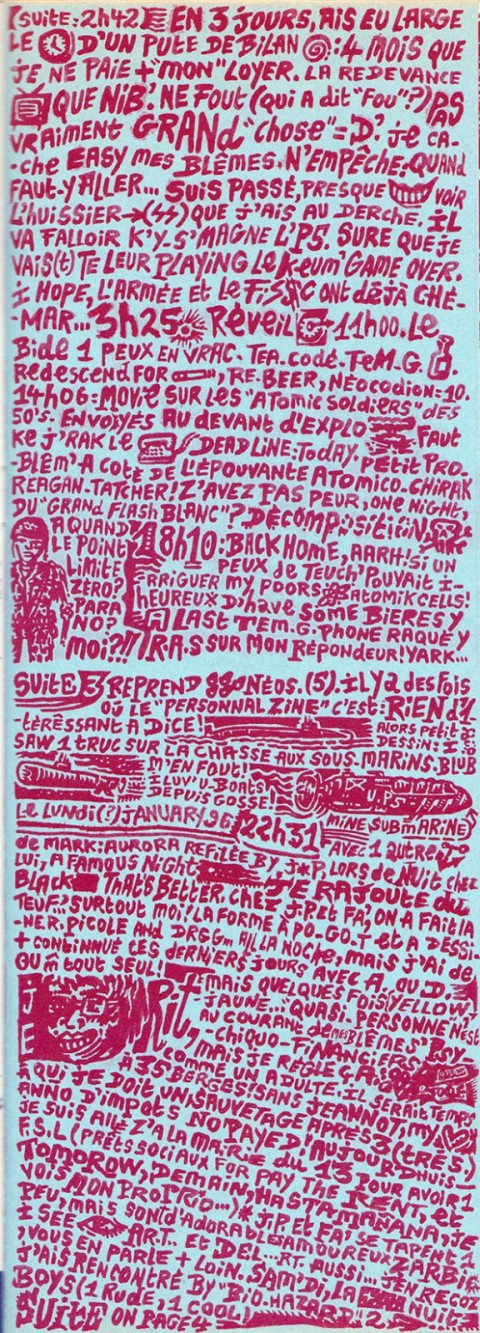 (SUITE: 2h42) EN 3 JOURS, AIS EU LARGE
LE D'UN PUTE DE BILAN : 4 MOIS QUE
JE NE PAIE + "MON" LOYER. LA REDEVANCE
QUE NIB! NE FOUT (qui A dit "FOU"?) PAS
VRAIMENT GRAND "chose" = D' je CA-
-che EASY MES BLÊMES. N'EMPÊCHE: QUAND
FAUT-Y ALLER... SUIS PASSÉ, PRESQUE VOIR
L'HUISSIER → (ϟϟ) QUE J'AIS AU DERCHE. IL
VA FALLOIR K'Y-S'MAGNE L'PS. SURE QUE je
VAIS(t) TE LEUR PLAYING LE KEUM' GAME OVER.
I HOPE, L'ARMÉE ET LE FIS$C ONT DÉJÀ CHÉ-
-MAR... 3h25 Réveil 11h00. Le
Bide 1 PEUX EN VRAC. TEA. codé. TeM.G.
Redescend FOR , RE.BEER, NÉOCODION: 10.
14h06: MOVIE SUR LES "ATOMIC SOLDIERS" DES
50'S. ENVOYÉS AU DEVANT d'EXPLO FAUT
Ke J'RAK LE DEADLINE: TODAY. PETIT PRO-
-BLÊM' A COTÉ DE L'ÉPOUVANTE ATOMICO-CHIRAK
REAGAN-TATCHER! Z'AVEZ PAS PEUR, ONE NIGHT,
DU "GRAND FLASH BLANC"? DÉCOMPOSITION
A QUAND
LE POINT
LIMITE
ZÉRO?
PARA
NO?
MOI?!!
18h10: BACK HOME, AARH! SI UN
PEUX de TEUCH' POUVAIT I-
-RRIGUER MY POORS ATOMIK CELLS!
HEUREUX D'HAVE SOME BIERES Y
LA LAST TEM.G. PHONE RAQUE Y
R.A.S SUR MON RÉPONDEUR! YARK...
SUITE 3 REPREND NÉOS. (5). IL Y A des FOIS
OÙ LE "PERSONNAL ZINE" C'EST: RIEN d'I-
-TÉRÊSSANT A DICE! ALORS PETIT
DESSIN: I
SAW 1 TRUC SUR LA CHASSE AUX SOUS-MARINS. BLUB
M'EN FOUT!
I LUV' U-BOATS
DEPUIS GOSSE!
LE LUNDI(?) JANUARY 96 22h31 MINE SUBMARINE
de MARK: AURORA REFILÉE BY J*P, LORS de NUIT CHEZ
AVEC 1 AUTRE
LUI, A FAMOUS NIGHT
BLACK THAT'S BETTER. CHEZ J:P ET FA', ON A FAIT LA
JE RAJOUTE du
TEUF? SURTOUT MOI! LA FORME À PO-GO-T ET A DESSI-
-NER. PICOLE AND DRGGM ALL LA NOCHE, MAIS J'AI de
+ CONTINNUÉ CES DERNIERS JOURS AVEC A, OU D.
OU M TOUT SEUL!
+ MAIS QUELQUES FOIS YELLOW,
JAUNE... "QUASI-PERSONNE N'EST
AU COURANT de MES BLÊMES' BOY
-CHIQUO-FINANCIERS
MAIS JE REGLE ÇA
COMME UN ADULTE, IL SERAIT TEMPS
A 35 BERGES! SANS JEANNOT, MY
A QUI JE DOIT UN SAUVETAGE APRÈS 3 (TRÈS)
ANNO D'IMPOTS NO PAYED! AUJOURD'HUIS
JE SUIS ALLÉ Z'A LA MAIRIE du 13 POUR AVOIR 1
F.S.L (PRÊTS SOCIAUX FOR PAY THE RENT, et
TOMOROW, DEMAIN, HASTA MANANA, JE
VOIS MON PROPRIO...) J:P ET FA' SE TAPENT 1
PEU, MAIS SONT d'ADORABLES AMOUREUX ZARBIS
I SEE ART. ET DEL...RT. AUSSI... J'EN RECOZ
, VOUS EN PARLE + LOIN. SAM'DI, LA NUIT
J'AIS RENCONTRÉ BY "BIO-HAZARD" 2
BOYS (1 RUDE, 1 COOL)
SUITE ON PAGE 4